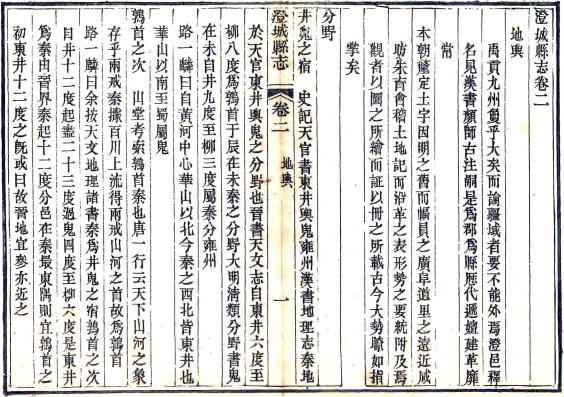 澄城縣志卷二
地輿
禹貢九州夐乎大矣而論疆域者要不能外焉澄邑釋
名見漢書顏師古注嗣是爲郡爲縣歷代遞嬗建革靡
常
本朝釐定土宇因明之舊而幅員之廣阜道里之遠近咸
昉朱育會稽土地記而沿革之表形勢之要統附及焉
觀者以圖之所繪而証以冊之所載古今大勢瞭如指
掌矣
分野
井鬼之宿 史記天官書東井輿鬼雍州漢書地理志秦地
澄城縣志 卷二 地輿 一
於天官東井輿鬼之分野也晉書天文志自東井六度至
柳八度爲鶉首于辰在未秦之分野大明清類分野書鬼
在未自井九度至柳三度屬秦分雍州
路一驎曰自黃河中心華山以北今秦之西北皆東井也
華山以南至蜀屬鬼
鶉首之次 山堂考索鶉首秦也唐一行云天下山河之象
存乎兩戒秦據百川上流得兩戒山河之首故爲鶉首
路一驎曰余按天文地理諸書秦爲井鬼之宿鶉首之次
目井十二度起盡二十三度過鬼四度至柳六度是東井
爲秦由晉界秦起十二度分邑在秦最東隅則宜鶉首之
初東井十二度之旣或曰故晉地宜參亦近之